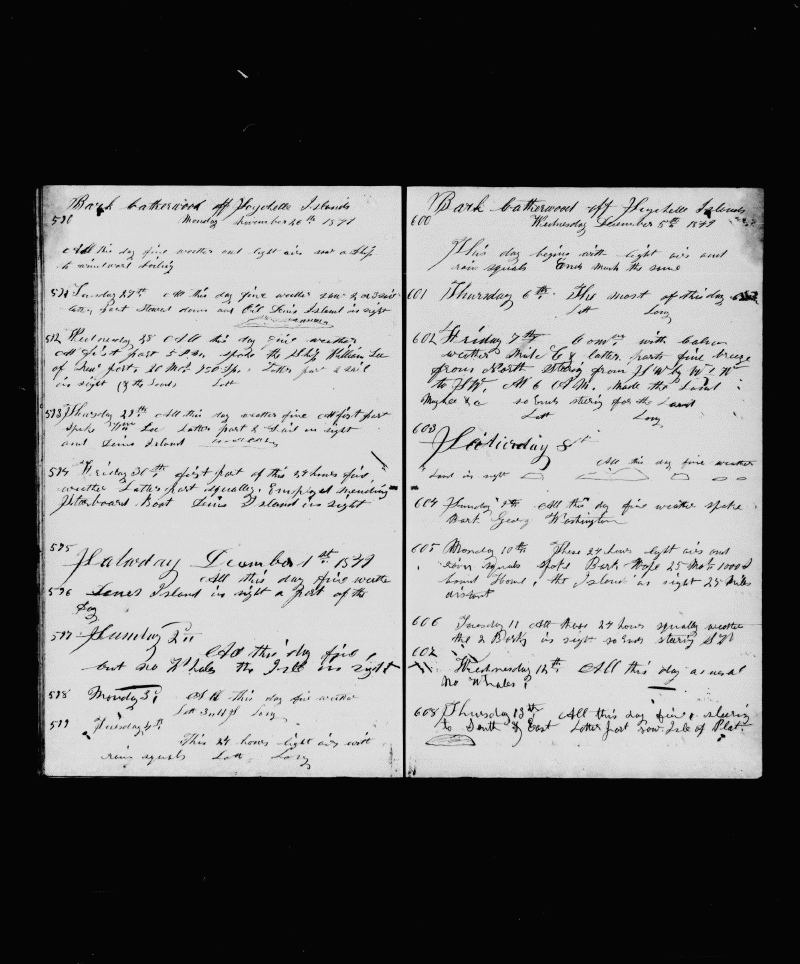 Bark Catherwood off Seychelle Islands
590 Monday November 26th 18
All this day fine weather and light airs saw a Ship
to windward boiling
591 Tuesday 27th All this day fine weather saw 2 or 3 sail
latter part down and Denis Island in sight
592 Wednesday 28 All this day fine weather
At first part 5 P.M. spoke the Ship William Lee
of port, 20 Mos. 250 Sp. Latter part a sail
in sight Lands Latt
593 Thursday 29th All this day weather fine At first part
Spoke Wm Lee Latter part 2 Sail in sight
and Denis Island
594 Friday 30th first part of this 24 hours fine
weather Latter part squally. Employed mending
Starboard Boat Denis Island in sight
595
Saturday December 1st 1849
All this day fine weather
596 Denis Island in sight a part of the
Day
597 Sunday 2n
All this day fine,
but no Whales the Isle in sight
598 Monday 3, All this day fine weather
Latt Long
599 Tuesday 4th
This 24 hours light airs with
rain squals Latt Long
Bark Catherwood off Seychelle Islands
600 Wednesday December 5th 1849
This day begins with light airs and
rain squals Ends much the same
601 Thursday 6th The most of this day
Latt Long
602 Friday 7th Comms with Calm
weather Middle & latter parts fine breeze
from North Steering from SW by W W
to SW. At 6 A.M. Made the Land
so Ends steering for the Land
Latt Long
603
Saturday 8th
All this day fine weather
Land in sight
604 Sunday 9th All this day fine weather spoke
Bark George Washington
605 Monday 10th These 24 hours light airs and
rain squals spoke Bark Hope 25 Mots 1000
bound Home, the Island in sight 25 Miles
distant
606 Tuesday 11 All these 24 hours squaly weather
the 2 Barks in sight so Ends steering SW
607
Wednesday 12th All this day as usual
No Whales,
608 Thursday 13th All this day fine, steering
to South & East Latter part saw Isle of Plat.